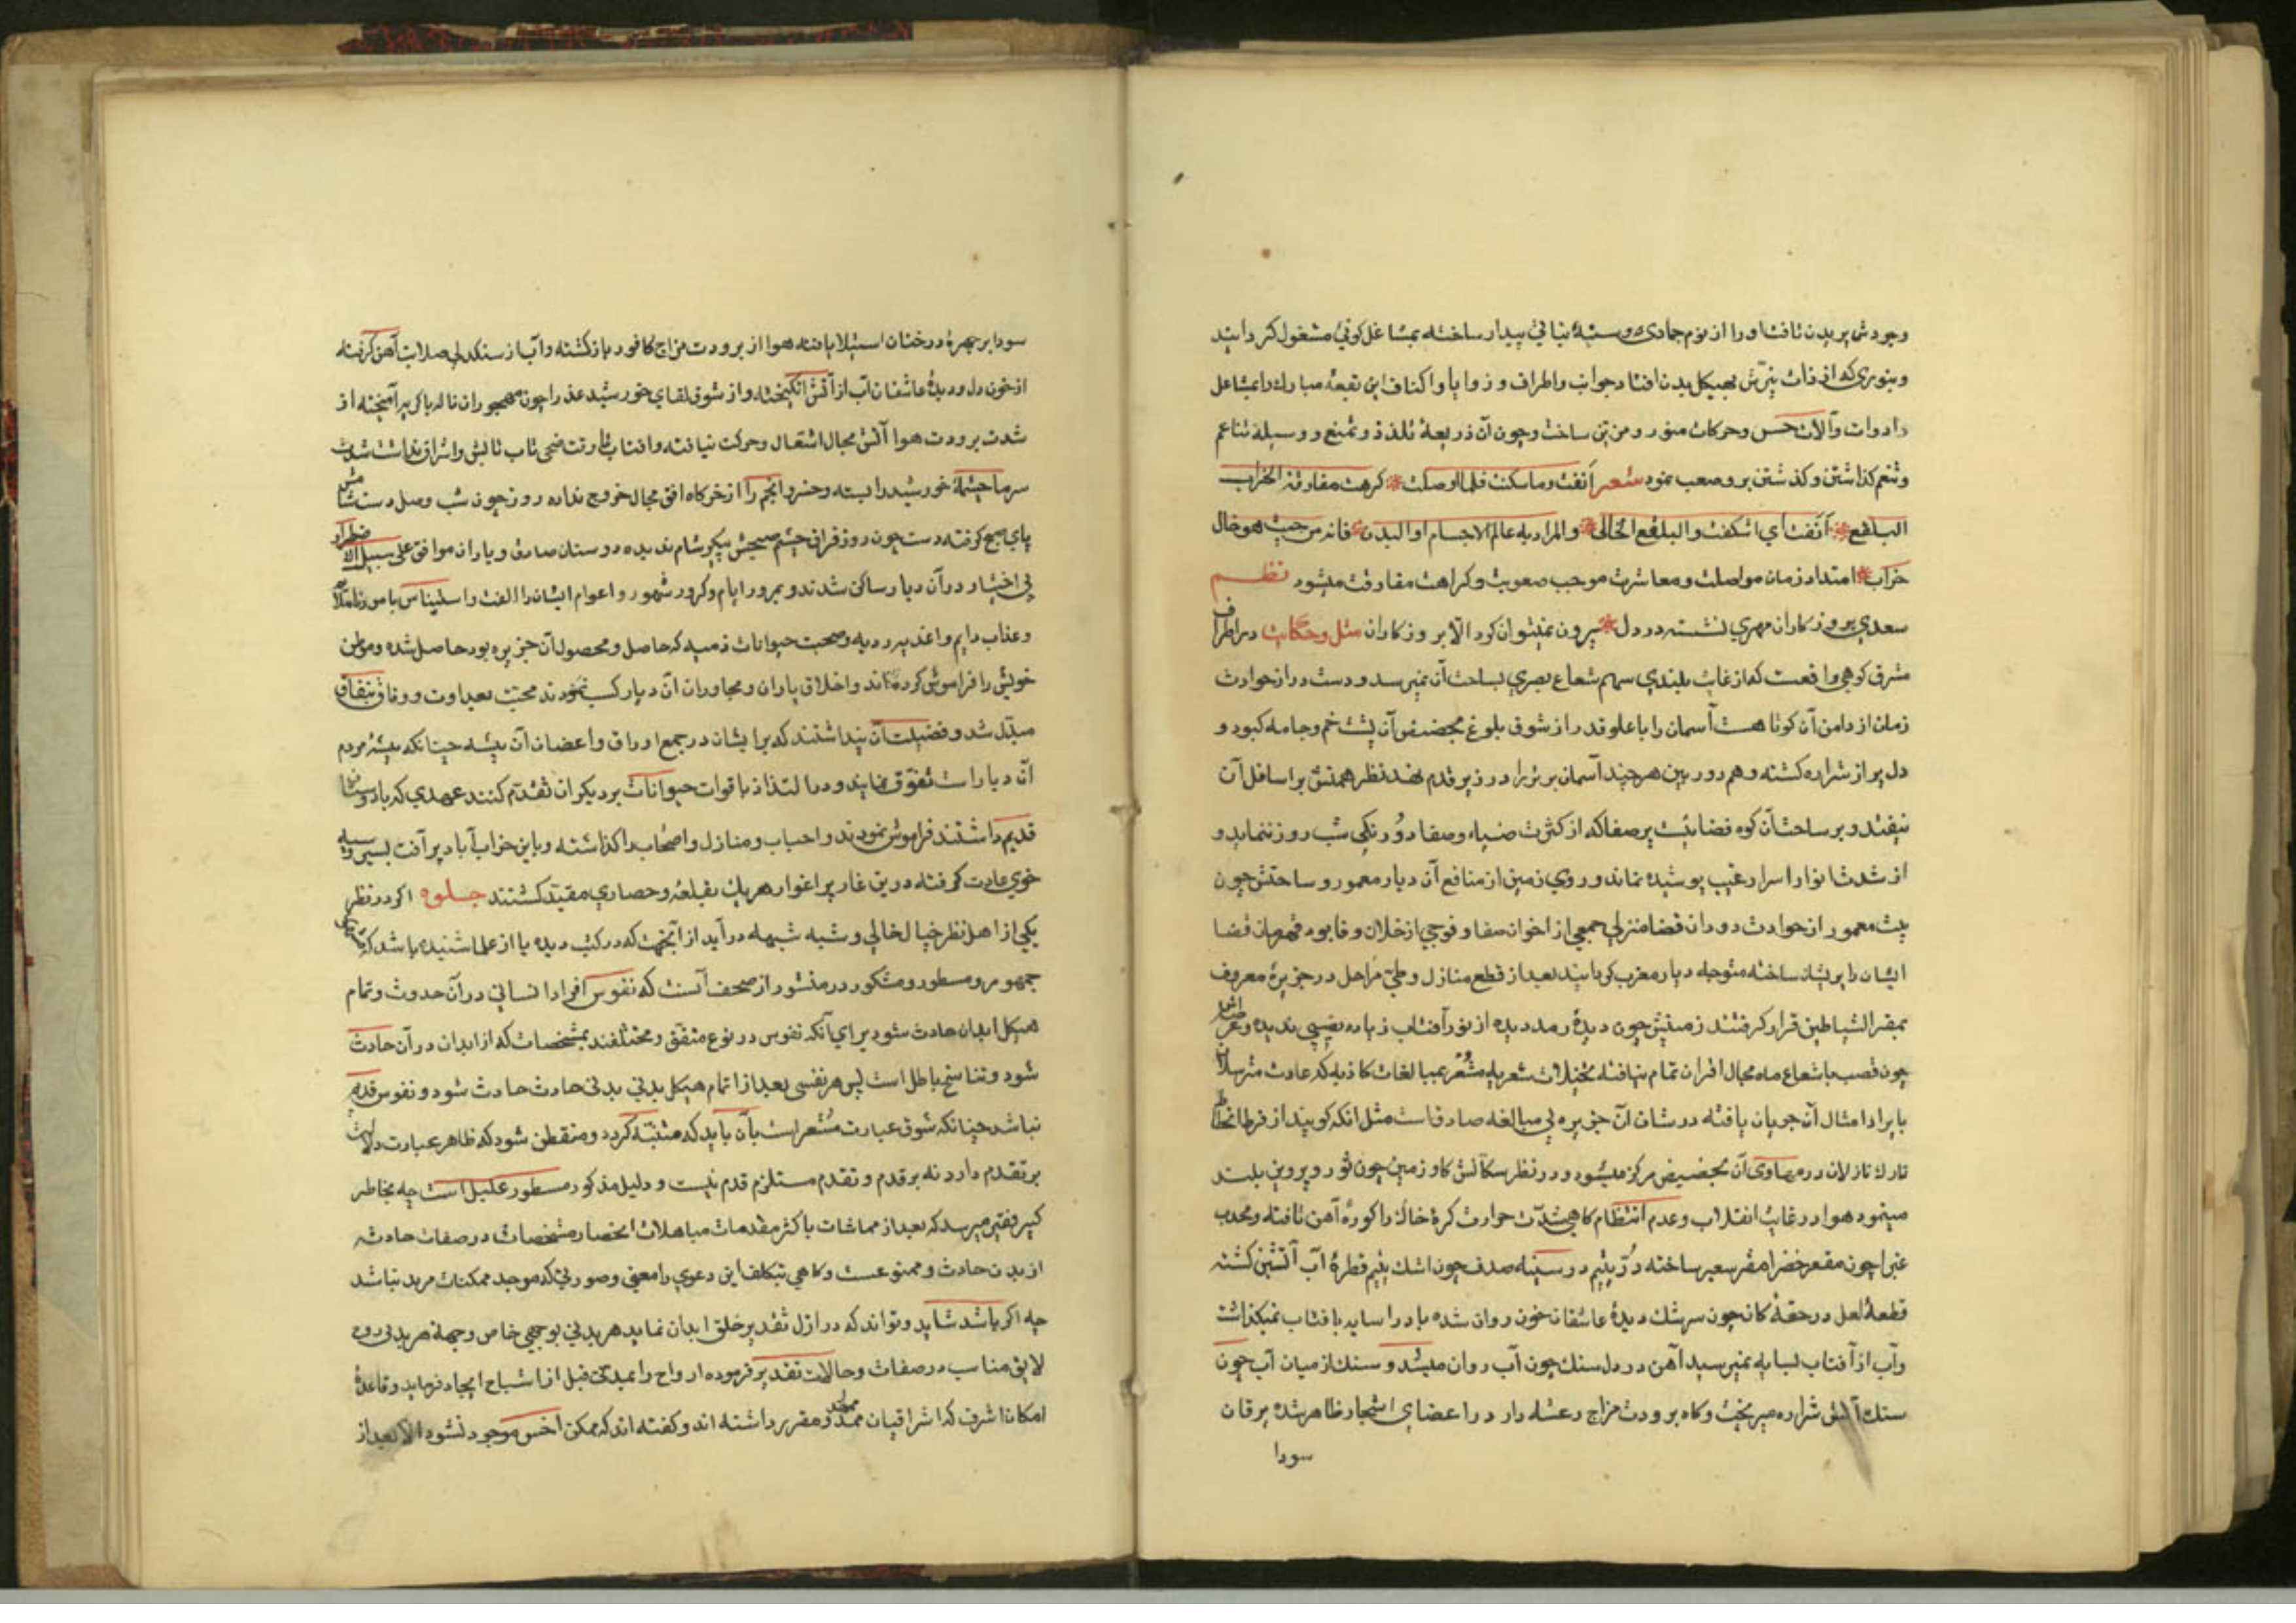 وجودش بر بدن تافت او را از نوم جمادی و سنهٔ نباتی بیدار ساخته بمشاغل کونی مشغول کردانید
وبنوری که از ذات نیرش بهیکل بدن افتاد جوانب واطراف و زوایا واکناف این بقعهٔ مبارک را بمشاعل
وادوات وآلات حس وحرکات منور و مزین ساخت وچون آن ذریعهٔ تلذذ وتمتع و وسیلهٔ تناعم
وتنعم کذاشتن وکذشتن برو صعب نمود شعر انفت وما سکنت فلما اوصلت * کرهت مفارقة الخراب
البلقع * انفت ای اسنکفت والبلقع الخالی * والمراد به عالم الاجسام او البدن * فانه من حیث هو خال
خراب * امتداد زمان مواصلت ومعاشرت موجب صعوبت وکراهت مفارقت میشود نظم
سعدی بروزکاران مهری نشسته در دل * بیرون نمیتوان کرد الا بروزکاران مثل وحکایت در اطراف
مشرق کوهی واقعست که از غایت بلندی سهام شعاع بصری بساحت آن نمیرسد ودست دراز حوادث
زمان از دامن آن کوتاهست آسمان را با علو قدر از شوق بلوغ بحضیض آن پشت خم وجامه کبود و
دل پر از شراره کشته وهم دوربین هر چند آسمان برین را در زیر قدم نهد نظر همتش بر اسافل آن
نیفتد وبر ساحت آن کوه فضاییست پرصفا که از کثرت ضیاء وصفا دو رنکی شب روز ننماید و
از شدت انوار اسرار غیب پوشیده نماند وروی زمین از منافع آن دیار معمور وساحتش چون
بیت معمور از حوادث دوران قضا منزلی جمعی از اخوان صفا وفوجی از خلان وفا بوده قهرمان قضا
ایشان را پریشان ساخته متوجه دیار مغرب کردانید بعد از قطع منازل وطی مراحل در جزیرهٔ معروف
بمقر الشیاطین قرار کرفتند زمینش چون دیدهٔ رمد دیده از نور آفتاب زیاده نصیبی ندیده وعراضش
چون قصب با شعاع ماه مجال اقران تمام نیافته مخیلات شعریه مشعر بمبالغات کاذبه که عادت مترسلان
بایراد امثال آن جریان یافته در شان آن جزیره بی مبالغه صادق است مثل انکه کویند از فرط انحطاط
تارک نازلان در مهاوی آن بحضیض مرکز میشود ودر نظر سکانش کاو زمین چون ثور وپروین بلند
مینمود هوا در غایت انقلاب وعدم انتظام کاهی شدت حرارت کرهٔ خاک را کورهٔ آهن تافته ومحدب
غبرا چون مقعر خضرا مقر سعیر ساخته در یتیم در سینهٔ صدف چون اشک یتیم قطرهٔ آب آتشین کشته
قطعهٔ لعل در حقهٔ کان چون سرشک دیدهٔ عاشقان خون روان شده باد را سایه با فتاب نمیکذاشت
وآب از آفتاب بسایه نمیرسید آهن در دل سنک چون آب روان میشد و سنک از میان آب چون
سنک آتش شراره میریخت وکاه برودت مزاج رعشه دار در اعضای اشجار ظاهر شده یرقان
سودا
سودا بر چهرهٔ درختان استیلا یافته هوا از برودت مزاج کافور باز کشته وآب از سنکدلی صلابت آهن کرفته
از خون دل و دیدهٔ عاشقان آب از آتش انکیخته واز شوق لقای خورشید عذرا چون مهجوران ناله با کریه آمیخته از
شدت برودت هوا آتش مجال اشتعال وحرکت نیافته وافتاب را وقت ضحی تاب تابش واشراق نداشت شدت
سرما چشمهٔ خورشید را بسته وخسرو انجم را از خرکاه افق مجال خروج نداده روز چون شب وصل دست شامش
پای صبح کرفته دست چون روز فراق چشم صبحش پیکر شام ندیده دوستان صادق و یاران موافق علی سبیل الاضطرار
بی اختیار در آن دیار ساکن شدند وبمرور ایام وکرور شهور و اعوام ایشان را الفت واستیناس بامور ناملایم
وعذاب دایم واغذیه ردیه وصحبت حیوانات ذمیه که حاصل ومحصول آن جزیره بود حاصل شده وموطن
خویش را فراموش کرده‌اند واخلاق یاران ومجاوران آن دیار کسب نمودند محبت بعداوت ووفاق بنفاق
مبدل شد وفضیلت آن پنداشتند که بر ایشان در جمع اوراق واغصان آن بیشه چنانکه بیشهٔ مردم
آن دیار است تفوق نمایند ودر التذاذ باقوات حیوانات بر دیکران تقدم کنند عهدی که با دوستان
قدیم داشتند فراموش نمودند واحباب ومنازل واصحاب را کذاشته وباین خراب آباد پر آفت بسیر وسیه
خوی عادت کرفته درین غار پر اغوار هر یک بقلعهٔ وحصاری مقید کشتند جلوه اکر در نظر
یکی از اهل نظر خیال خالی وشبه شبهه در آید از آنجهت که در کتب دیده یا از علما شنیده باشد که
جمهور ومسطور ومشکور در منشور از صحف آنست که نفوس افراد انسانی در آن حدوث وتمام
هیکل ابدان حادث شود برای آنکه نفوس در نوع متفق ومختلفند بمشخصات که از ابدان در آن حادث
شود وتناسخ باطل است پس هر نفسی بعد از اتمام هیکل بدنی بدنی حادث حادث شود ونفوس قدیم
نباشد چنانکه شوق عبارت مشعر است بآن باید که متنبه کردد ومتفطن شود که ظاهر عبارت دلالت
بر تقدم دارد نه بر قدم وتقدم مستلزم قدم نیست ودلیل مذکور مسطور علیل است چه بخاطر
کسیر فقیر میرسد که بعد از مماشات با کثر مقدمات مباهلات انحصار مشخصات در صفات حادثه
از بدن حادث وممنوعست وکاهی بتکلف این دعوی را معنی وصورتی که موجد ممکنات مرید نباشد
چه اکر باشد شاید وتواند که در ازل تقدیر خلق ابدان نماید هر بدنی بوجهی خاص وجهة هر بدنی روح
لایق مناسب در صفات وحالات تقدیر فرموده ارواح را بمدتی قبل از اشباح ایجاد فرماید وقاعدهٔ
امکان اشرف که اشراقیان ممهد ومقرر داشته اند وکفته اند که ممکن اخس موجود نشود الا بعد از